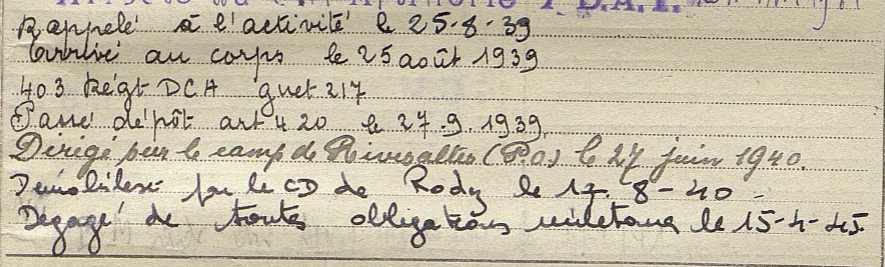 Rappelé à l'activité le 25-8-39
Arrivé au corps le 25 août 1939
403 Régt DCA guet 217
Passé dépôt art 420 le 27.9.1939.
Dirigé sur le camp de Rivesaltes (P.O) le 27 juin 1940.
Démobilisé par le CD de Rodez le 17-8-40
Dégagé de toutes obligations militaires le 15-4-45.